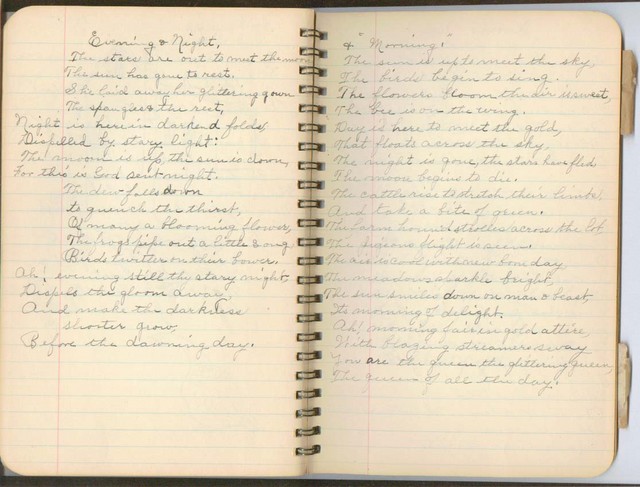 Evening & Night,
The stars are out to meet the moon
The sun has gone to rest.
She laid away her glittering gown
The spangles & the rest,
Night is here in darkend folds
Dispelled by stary light!
The moom is up, the sun is down,
For this is God sent night.
The dew falls down
to quench the thirst,
O! many a blooming flower,
The frogs pipe out a little song
Birds twitter on their bower.
Ah! evening still thy stary night,
Dispels the gloom away,
And make the darkness
shorter grow,
Before the dawning day.
& "Morning!"
The sun is up to meet the sky,
The birds begin to sing.
The flowers bloom the air is sweet,
The bee is on the wing.
Day is here to meet the gold,
That floats across the sky,
The night is gone, the stars have fled
The moon begins to die.
The cattle rise to stretch their limbs!
And take a bite of green.
The farm hound strolls across the lot
The flight is seen.
The air is cool with new born day
The meadows sparkle bright,
The sun smiles down on man & beast,
Its morning delight.
Ah! morning fair in gold attire,
With blazing streamers sway
You are the queen the glittering queen,
The queen of all the day.